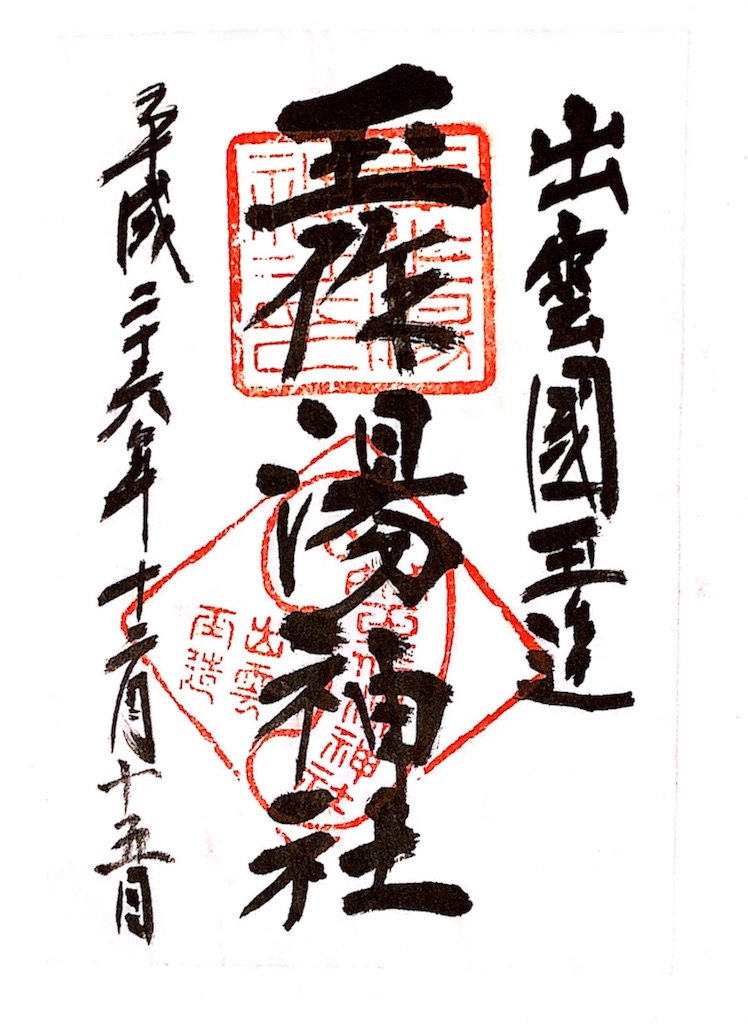 出雲國玉造
玉作湯神社
平成二十六年十二月十五日
出雲
玉造